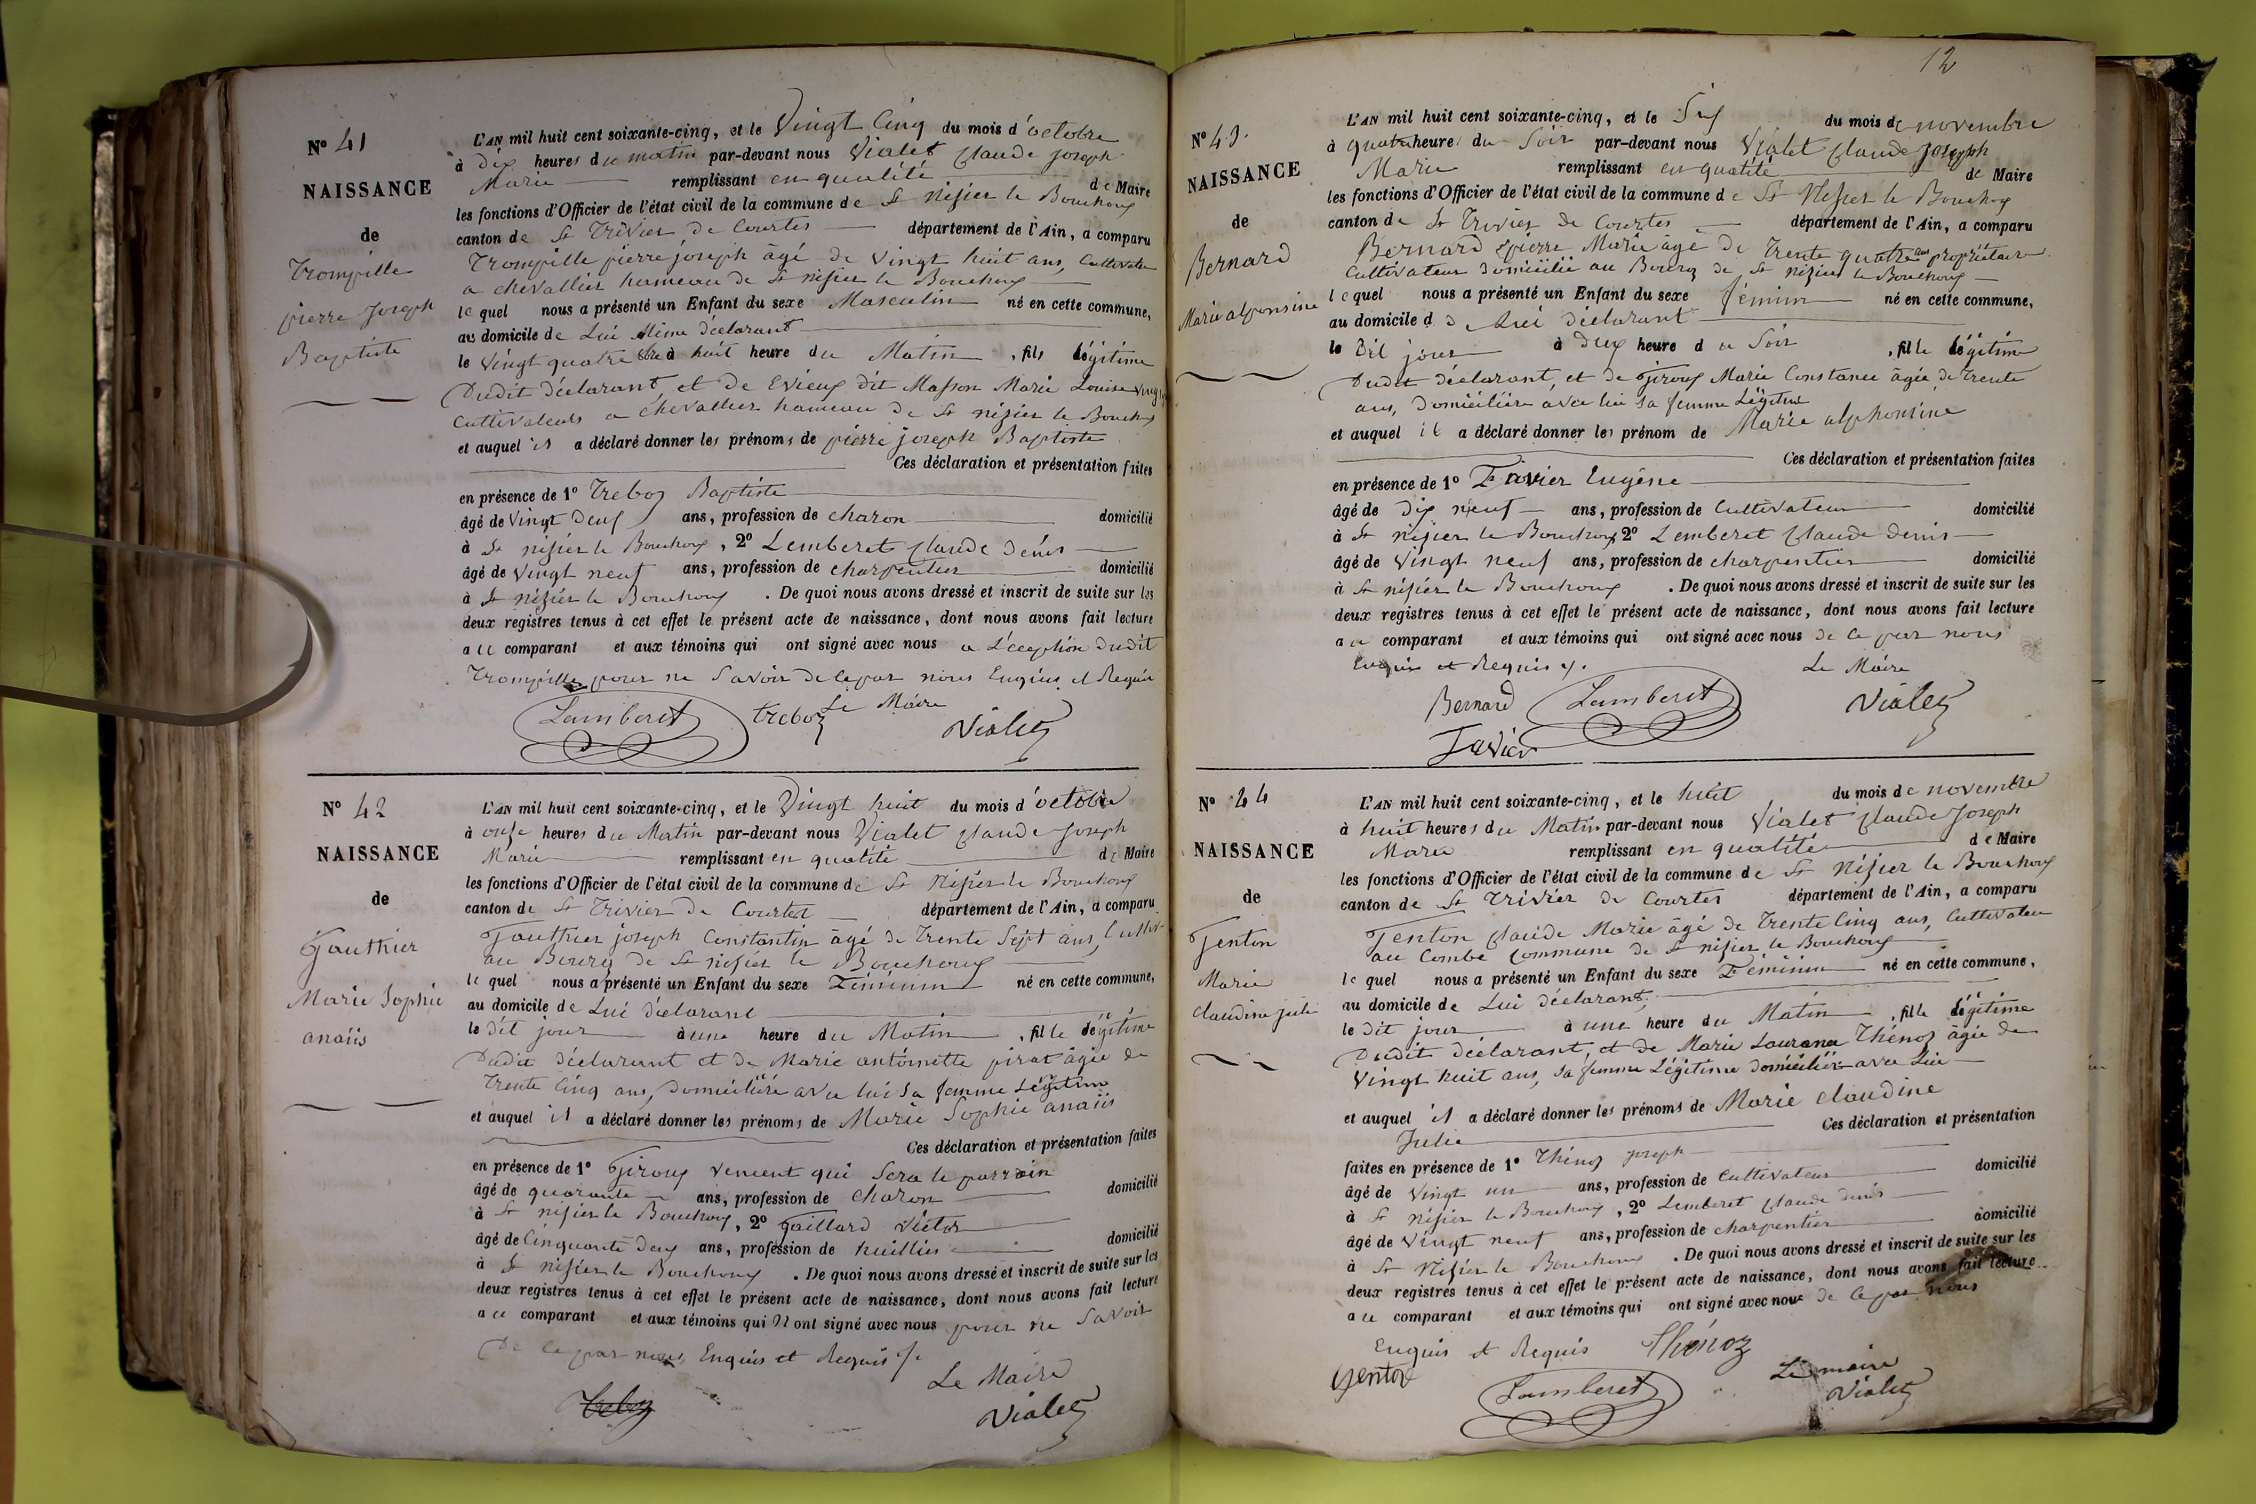 N° 41
NAISSANCE
de
Trompille
pierre Joseph
Baptiste
L'AN mil huit cent soixante-cinq, et le Vingt Cinq du mois d'octobre
à dix heures du matin par-devant nous Vialet Claude Joseph
Marie remplissant en qualité de Maire
les fonctions d'Officier de l'état civil de la commune de St Nisier le Bouchoux
canton de St Trivier de Courtes département de l'Ain, a comparu
Trompille pierre joseph âgé de vingt huit ans, Cultivateur
a chevallier hameau de St nizier le Bouchoux
lequel nous a présenté un Enfant du sexe Masculin né en cette commune,
au domicile de Lui Même déclarant
le vingt quatre à huit heure du Matin, fils légitime
Dudit déclarant, et de Evieux dit Masson Marie Louise
Cultivateurs a chevallier hameau de St nizier le Bouchoux
et auquel il a déclaré donner les prénoms de pierre joseph Baptiste
Ces déclaration et présentation faites
en présence de 1° Treboz Baptiste
âgé de vingt deux ans, profession de charon domicilié
à St nizier le Bouchoux, 2° Lemberet Claude denis
âgé de vingt neuf ans, profession de charpentier domicilié
à St nizier le Bouchoux. De quoi nous avons dressé et inscrit de suite sur les
deux registres tenus à cet effet le présent acte de naissance, dont nous avons fait lecture
au comparant et aux témoins qui ont signé avec nous a L'éception dudit
Trompille pour ne Savoir de ce par nous Enquis et Requis
Lamberet Treboz Le Maire Vialet
N° 42
NAISSANCE
de
Gauthier
Marie Sophie
anaiis
L'AN mil huit cent soixante-cinq, et le Vingt huit du mois d'octobre
à onze heures du Matin par-devant nous Vialet Claude Joseph
Marie remplissant en qualité de Maire
les fonctions d'Officier de l'état civil de la commune de St Nizier le Bouchoux
canton de St Trivier de Courtes département de l'Ain, a comparu
Gauthier joseph Constantin âgé de Trente Sept ans, Cultivr
au Bourg de St nizier le Bouchoux
lequel nous a présenté un Enfant du sexe Féminin né en cette commune,
au domicile de Lui déclarant
le dit jour à une heure du Matin, fille légitime
Dudit déclarant et de Marie antoinette pirat âgée de
Trente Cinq ans, Domiciliée avec lui Sa femme Légitime
et auquel il a déclaré donner les prénoms de Marie Sophie anaiis
Ces déclaration et présentation faites
en présence de 1° Giroux vencent qui Sera le parrain
âgé de quarante ans, profession de Charon domicilié
à St nizier le Bouchoux, 2° Gaillard Victor
âgé de Cinquante deux ans, profession de huillier domicilié
à St nizier le Bouchoux. De quoi nous avons dressé et inscrit de suite sur les
deux registres tenus à cet effet le présent acte de naissance, dont nous avons fait lecture
au comparant et aux témoins qui ont signé avec nous pour ne Savoir
De ce par nous Enquis et Requis
Le Maire
Treboz Vialet
12
N° 43.
NAISSANCE
de
Bernard
Marie alponsine
L'AN mil huit cent soixante-cinq, et le Six du mois de novembre
à quatre heures du Soir par-devant nous Vialet Claude Joseph
Marie remplissant en qualité de Maire
les fonctions d'Officier de l'état civil de la commune de St Nizier le Bouchoux
canton de St Trivier de Courtes département de l'Ain, a comparu
Bernard pierre Marie âgé de Trente quatre ans propriétaire
Cultivateur domicilié au Bourg de St nizier le Bouchoux
lequel nous a présenté un Enfant du sexe féminin né en cette commune,
au domicile d Lui déclarant
le Dit jour à deux heure du Soir, fille légitime
Dudit déclarant, et de Giroux Marie Constance âgée de trente
ans, Domiciliée avec lui Sa femme Légitime
et auquel il a déclaré donner les prénom de Marie alphonsine
Ces déclaration et présentation faites
en présence de 1° Favier Eugène
âgé de dix neuf ans, profession de Cultivateur domicilié
à St nizier le Bouchoux 2° Lemberet Claude denis
âgé de Vingt neuf ans, profession de charpentier domicilié
à St nizier le Bouchoux. De quoi nous avons dressé et inscrit de suite sur les
deux registres tenus à cet effet le présent acte de naissance, dont nous avons fait lecture
au comparant et aux témoins qui ont signé avec nous de ce par nous
Enquis et Requis
Le Maire
Bernard Lamberet Vialet
Favier
N° 44
NAISSANCE
de
Genton
Marie
Claudine julie
L'AN mil huit cent soixante-cinq, et le huit du mois de novembre
à huit heures du Matin par-devant nous Vialet Claude Joseph
Marie remplissant en qualité de Maire
les fonctions d'Officier de l'état civil de la commune de St Nizier le Bouchoux
canton de St Trivier de Courtes département de l'Ain, a comparu
Genton Claude Marie âgé de Trente Cinq ans, Cultivateur
au Combe Commune de St nizier le Bouchoux
lequel nous a présenté un Enfant du sexe Féminin né en cette commune,
au domicile de Lui déclarant,
le dit jour à une heure du Matin, fille légitime
Dudit déclarant, et de Marie Laurence Thénoz âgée de
Vingt huit ans, Sa femme Légitime domiciliée avec Lui
et auquel il a déclaré donner les prénoms de Marie Claudine
Julie Ces déclaration et présentation
faites en présence de 1° Thénoz joseph
âgé de vingt un ans, profession de Cultivateur domicilié
à St Nizier le Bouchoux, 2° Lemberet Claude denis
âgé de vingt neuf ans, profession de charpentier domicilié
à St Nizier le Bouchoux. De quoi nous avons dressé et inscrit de suite sur les
deux registres tenus à cet effet le présent acte de naissance, dont nous avons fait lecture
au comparant et aux témoins qui ont signé avec nous de ce par nous
Enquis et Requis Thénoz
Genton Lamberet Le maire
Vialet